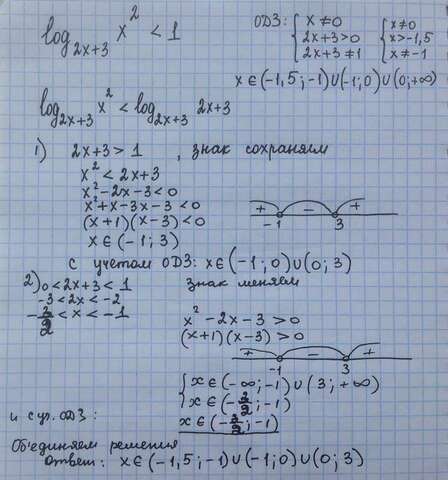 log₂ₓ₊₃ x² < 1
ОДЗ: { x ≠ 0 { x ≠ 0
2x+3 > 0 x > -1,5
2x+3 ≠ 1 x ≠ -1
x ∈ (-1,5 ; -1) ∪ (-1; 0) ∪ (0; +∞)
log₂ₓ₊₃ x² < log₂ₓ₊₃ 2x+3
1) 2x+3 > 1 , знак сохраняем
x² < 2x+3
x² - 2x - 3 < 0
x² + x - 3x - 3 < 0
(x+1)(x-3) < 0
+ - +
-1 3
x ∈ (-1; 3)
с учетом ОДЗ: x ∈ (-1; 0) ∪ (0; 3)
2) 0 < 2x+3 < 1 знак меняем
-3 < 2x < -2
-3/2 < x < -1
x² - 2x - 3 > 0
(x+1)(x-3) > 0
+ - +
-1 3
{ x ∈ (-∞; -1) ∪ (3; +∞)
x ∈ (-3/2; -1)
и с уч. ОДЗ: x ∈ (-3/2; -1)
Объединяем решения
Ответ: x ∈ (-1,5; -1) ∪ (-1; 0) ∪ (0; 3)